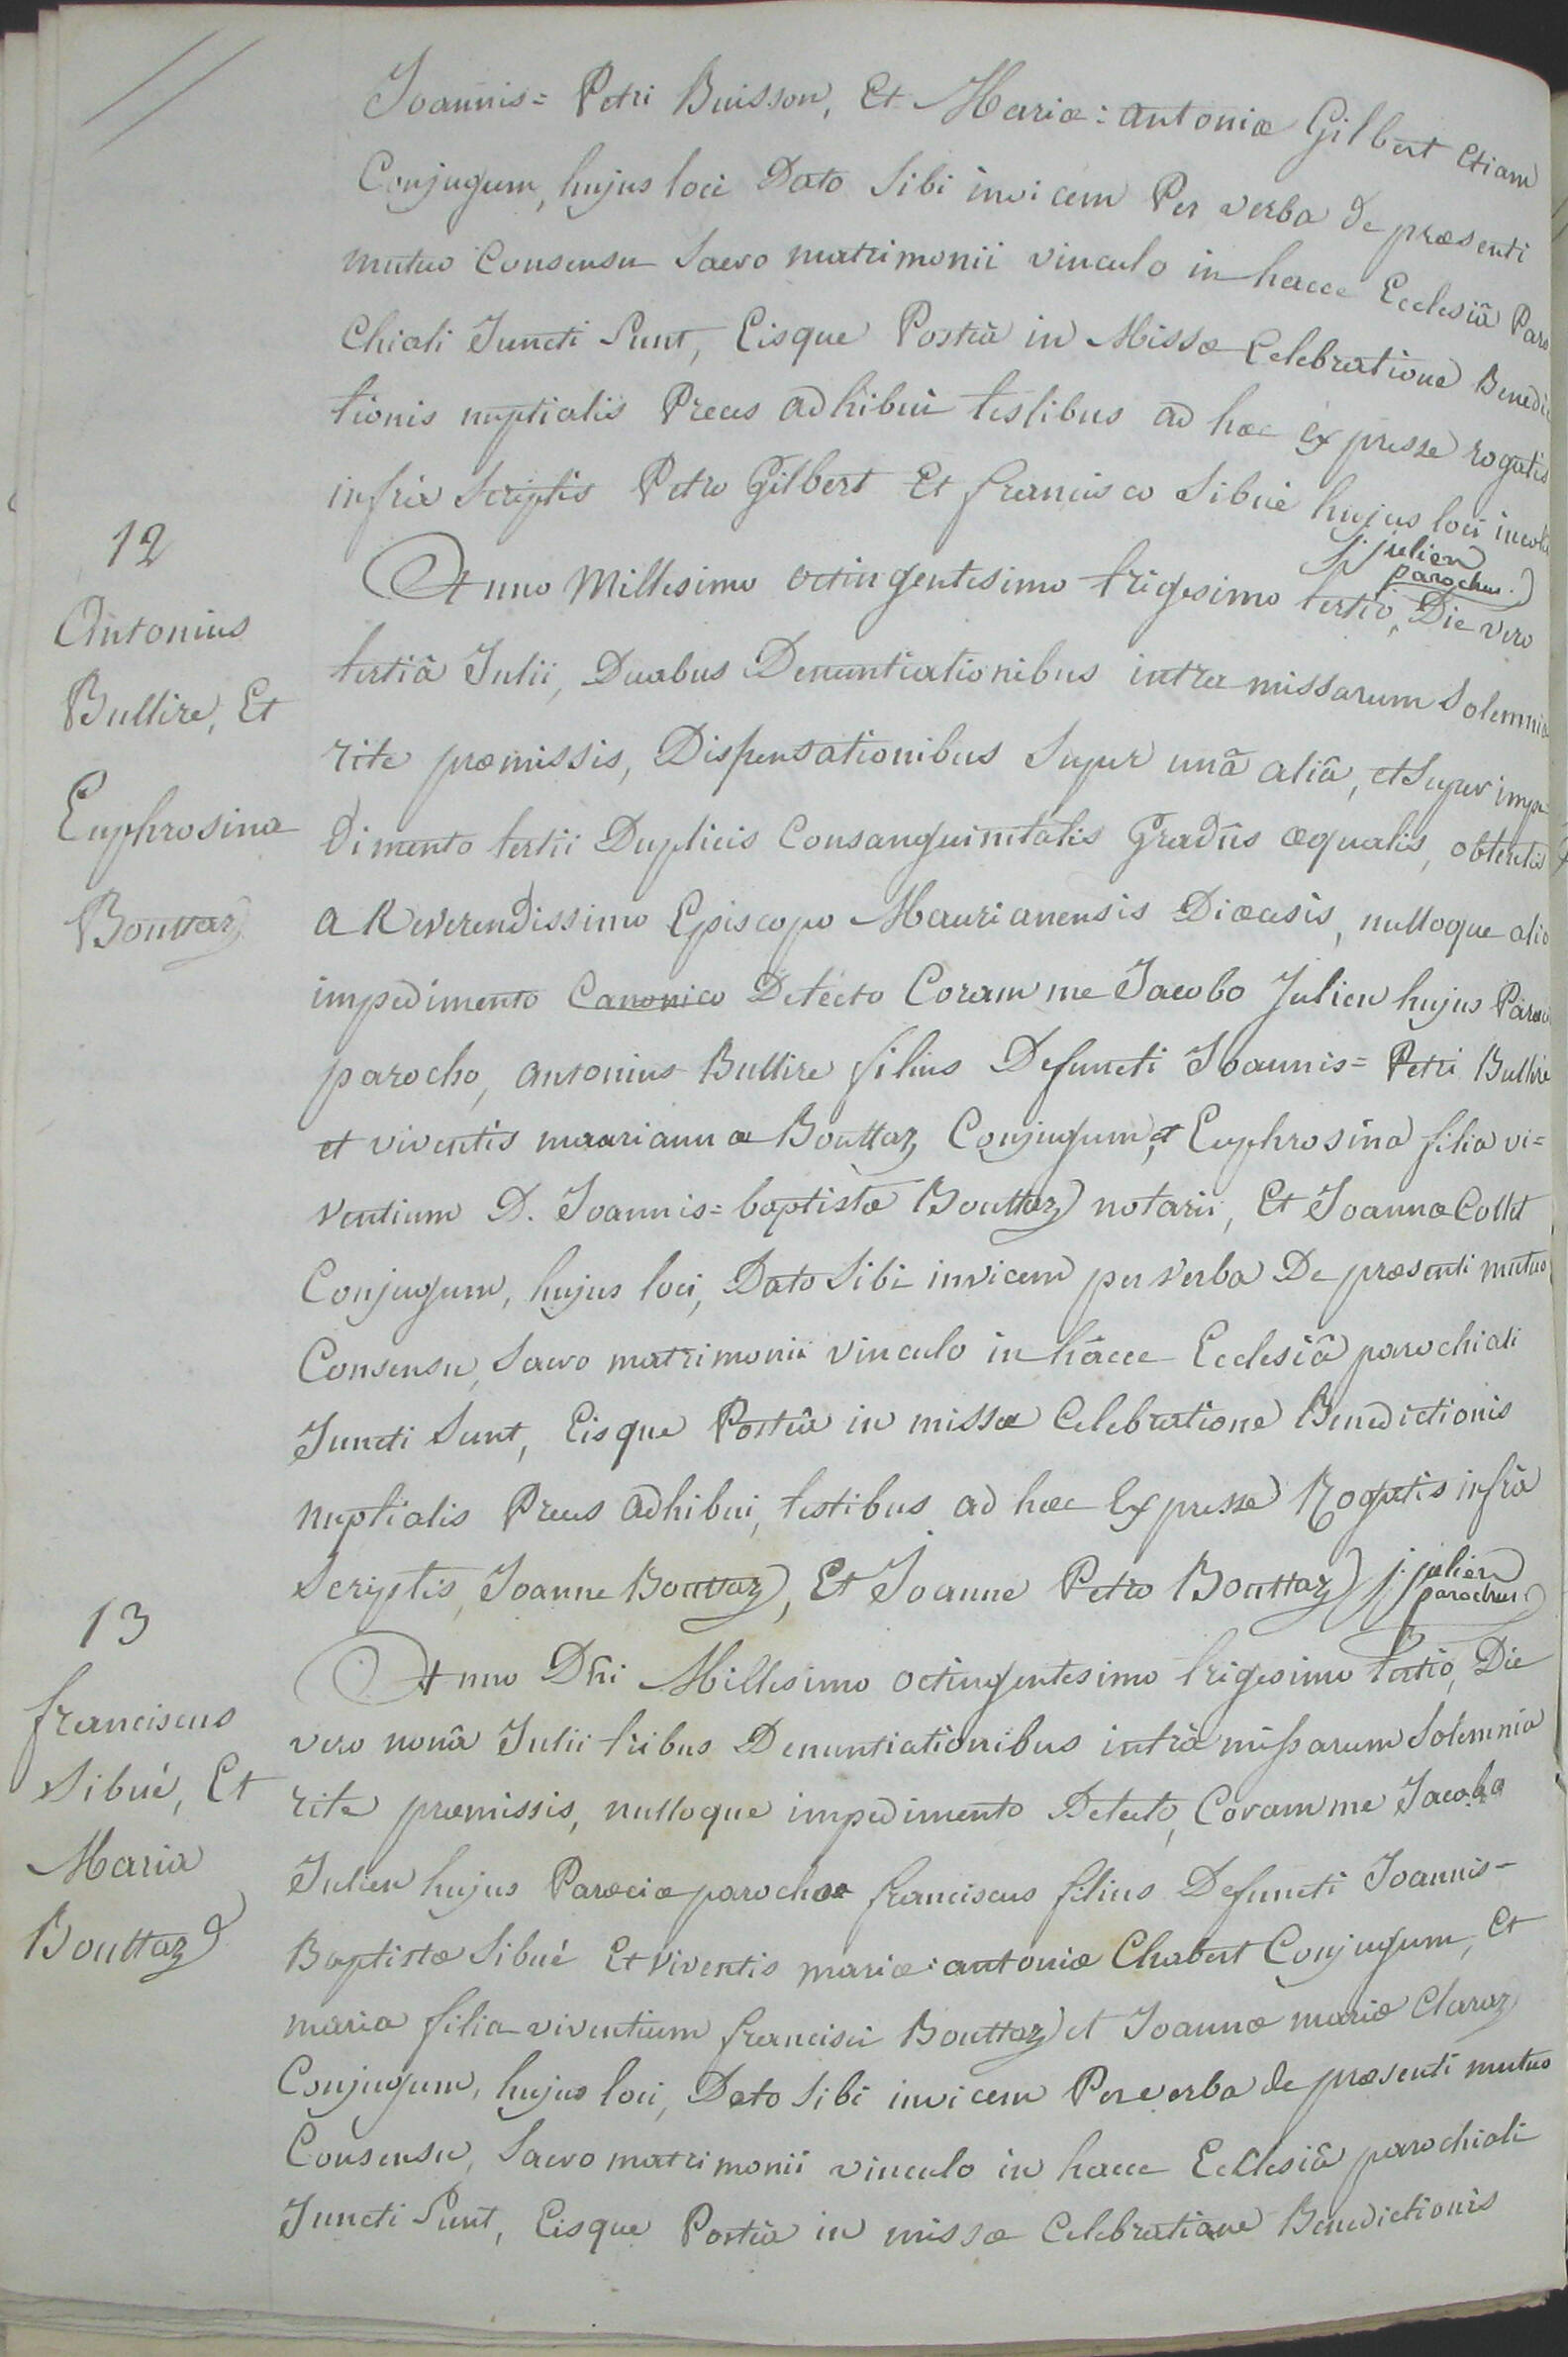 Joannis= Petri Buisson, Et Mariæ=antoniæ Gilbert etiam
Conjugum, hujus loci Dato Sibi invicem Per verba De præsenti
mutuo Consensu Sacro matrimonii vinculo in hacce Ecclesiâ Paro
chiali Juncti Sunt, Eisque Posteà in Missæ Celebratione Benedic
tionis nuptialis Preces adhibui testibus ad hæc expresse rogatis
infrà Scriptis Petro Gilbert Et francisco Sibué hujus loci incolis
j. julien
parochus.
12
Antonius
Bullire, Et
Euphrosina
Bouttaz
Anno Millesimo octingentesimo trigesimo tertio, Die vero
tertiâ Julii, Duabus Denuntiationibus intra missarum Solemnia
rite præmissis, Dispensationibus Super unâ aliâ, et Super impe=
Dimento tertii Duplicis Consanguinitatis Gradûs æqualis, obtentis
a Reverendissimo Episcopo Maurianensis Diœcesis, nulloque alio
impedimento Canonico Detecto Coram me Jacobo Julien hujus Parœciæ
parocho, antonius Bullire filius Defuncti Joannis= Petri Bullire
et viventis maariannæ Bouttaz Conjugum, et Euphrosina filia vi=
ventium D. Joannis= baptistæ Bouttaz notarii, Et Joannæ Collet
Conjugum, hujus loci, Dato Sibi invicem per verba De præsenti mutuo
Consensu, Sacro matrimonii vinculo in hâcce Ecclesiâ parochiali
Juncti Sunt, Eisque Posteà in missæ Celebratione Benedictionis
nuptialis Preces adhibui, testibus ad hæc Expresse Rogatis infrà
Scriptis, Joanne Bouttaz, Et Joanne Petro Bouttaz j. julien
parochus.
13
franciscus
Sibué, Et
Maria
Bouttaz
Anno Dni Millesimo octingentesimo trigesimo tertio, Die
vero nonâ Julii tribus Denuntiationibus intrà missarum Solemnia
rite præmissis, nulloque impedimento Detecto, Coram me Jacobo
Julien hujus Parœciæ parocho franciscus filius Defuncti Joannis-
Baptistæ Sibué Et viventis mariæ=antoniæ Chabert Conjugum, Et
maria filia viventium francisci Bouttaz et Joannæ mariæ Claraz
Conjugum, hujus loci, Dato Sibi invicem Per verba de præsenti mutuo
Consensu, Sacro matrimonii vinculo in hacce Ecclesiâ parochiali
Juncti Sunt, Eisque Posteà in missæ Celebratione Benedictionis